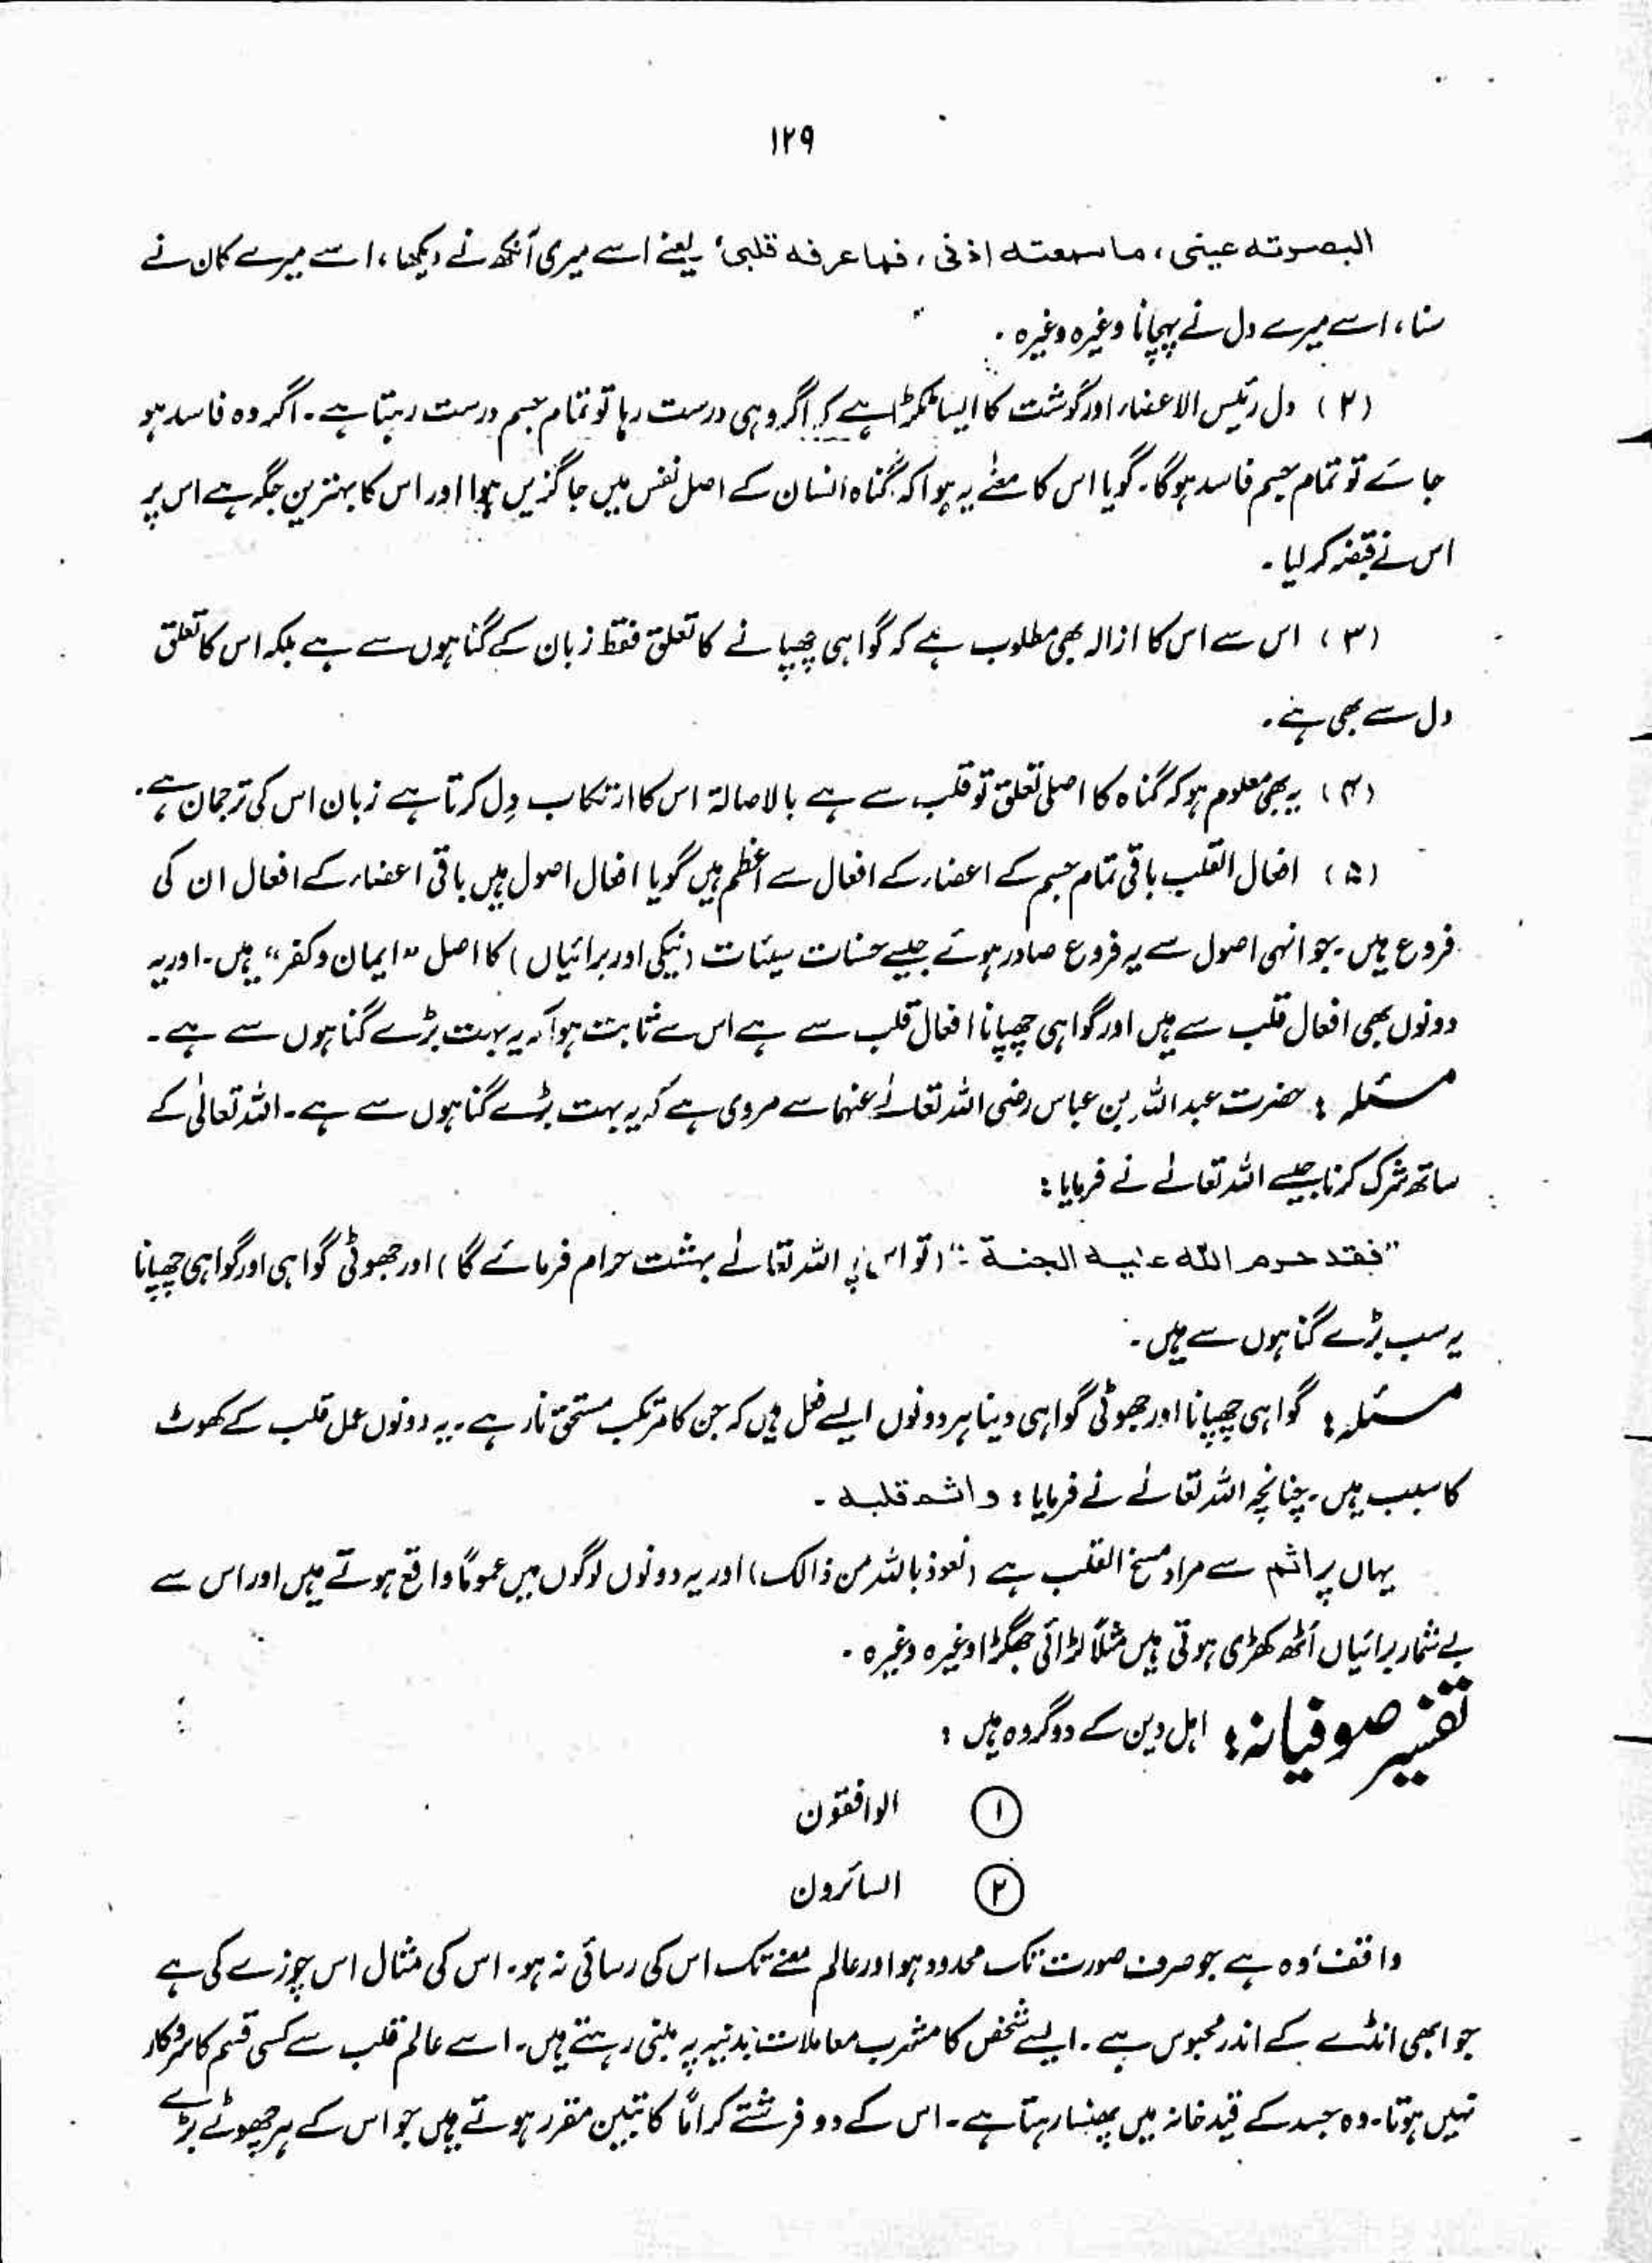 ۱۲۹
البصرته عینی، ما سمعته اذنی، فما عرفه قلبی' یعنے اسے میری آنکھ نے دیکھا، اسے میرے کان نے
سنا، اسے میرے دل نے پہچانا وغیرہ وغیرہ ۔
(۲) دل رئیس الاعضاء اور گوشت کا ایسا ٹکڑا ہے کہ اگر وہی درست رہا تو تمام جسم درست رہتا ہے۔ اگر وہ فاسد ہو
جائے تو تمام جسم فاسد ہوگا۔ گویا اس کا معنٰے یہ ہوا کہ گناہ انسان کے اصل نفس میں جاگزیں ہوا اور اس کا بہترین جگہ ہے اس پر
اس نے قبضہ کر لیا ۔
(۳) اس سے اس کا ازالہ بھی مطلوب ہے کہ گواہی چھپانے کا تعلق فقط زبان کے گناہوں سے ہے بلکہ اس کا تعلق
دل سے بھی ہے۔
(۴) یہ بھی معلوم ہو کہ گناہ کا اصلی تعلق تو قلب سے ہے بالاصالۃ اس کا ارتکاب دِل کرتا ہے زبان اس کی ترجمان ہے۔
(۵) افعال القلب باقی تمام جسم کے اعضاء کے افعال سے اعظم ہیں گویا افعال اصول ہیں باقی اعضاء کے افعال ان کی
فروع ہیں۔ جو انہی اصول سے یہ فروع صادر ہوئے جیسے حسنات سیئات (نیکی اور برائیاں) کا اصل "ایمان و کفر" ہیں۔ اور یہ
دونوں بھی افعال قلب سے ہیں اور گواہی چھپانا افعال قلب سے ہے اس سے ثابت ہوا کہ یہ بہت بڑے گناہوں سے ہے۔
مسئلہ : حضرت عبداللہ بن عباس رضی اللہ تعالےٰ عنہما سے مروی ہے کہ یہ بہت بڑے گناہوں سے ہے۔ اللہ تعالیٰ کے
ساتھ شرک کرنا جیسے اللہ تعالےٰ نے فرمایا :
"فقد حرم اللہ علیہ الجنۃ ۔" (تو اس پر اللہ تعالےٰ بہشت حرام فرمائے گا) اور جھوٹی گواہی اور گواہی چھپانا
یہ سب بڑے گناہوں سے ہیں ۔
مسئلہ : گواہی چھپانا اور جھوٹی گواہی دینا ہر دونوں ایسے فعل ہیں کہ جن کا مرتکب مستحق نار ہے۔ یہ دونوں عمل قلب کے کھوٹ
کا سبب ہیں۔ چنانچہ اللہ تعالےٰ نے فرمایا : و اثم قلبہ ۔
یہاں پر اثم سے مراد مسخ القلب ہے (نعوذ باللہ من ذالک) اور یہ دونوں لوگوں میں عموماً واقع ہوتے ہیں اور اس سے
بے شمار برائیاں اُٹھ کھڑی ہوتی ہیں مثلاً لڑائی جھگڑا وغیرہ وغیرہ ۔
تفسیر صوفیانہ : اہل دین کے دو گروہ ہیں :
۱ الواقفون
۲ السائرون
واقف' وہ ہے جو صرف صورت تک محدود ہو اور عالم معنے تک اس کی رسائی نہ ہو۔ اس کی مثال اس چوزے کی ہے
جو ابھی انڈے کے اندر محبوس ہے۔ ایسے شخص کا مشرب معاملات بدنیہ پہ مبنی رہتے ہیں۔ اسے عالم قلب سے کسی قسم کا سروکار
نہیں ہوتا۔ وہ جسد کے قید خانہ میں پھنسا رہتا ہے۔ اس کے دو فرشتے کراماً کاتبین مقرر ہوتے ہیں جو اس کے ہر چھوٹے بڑے